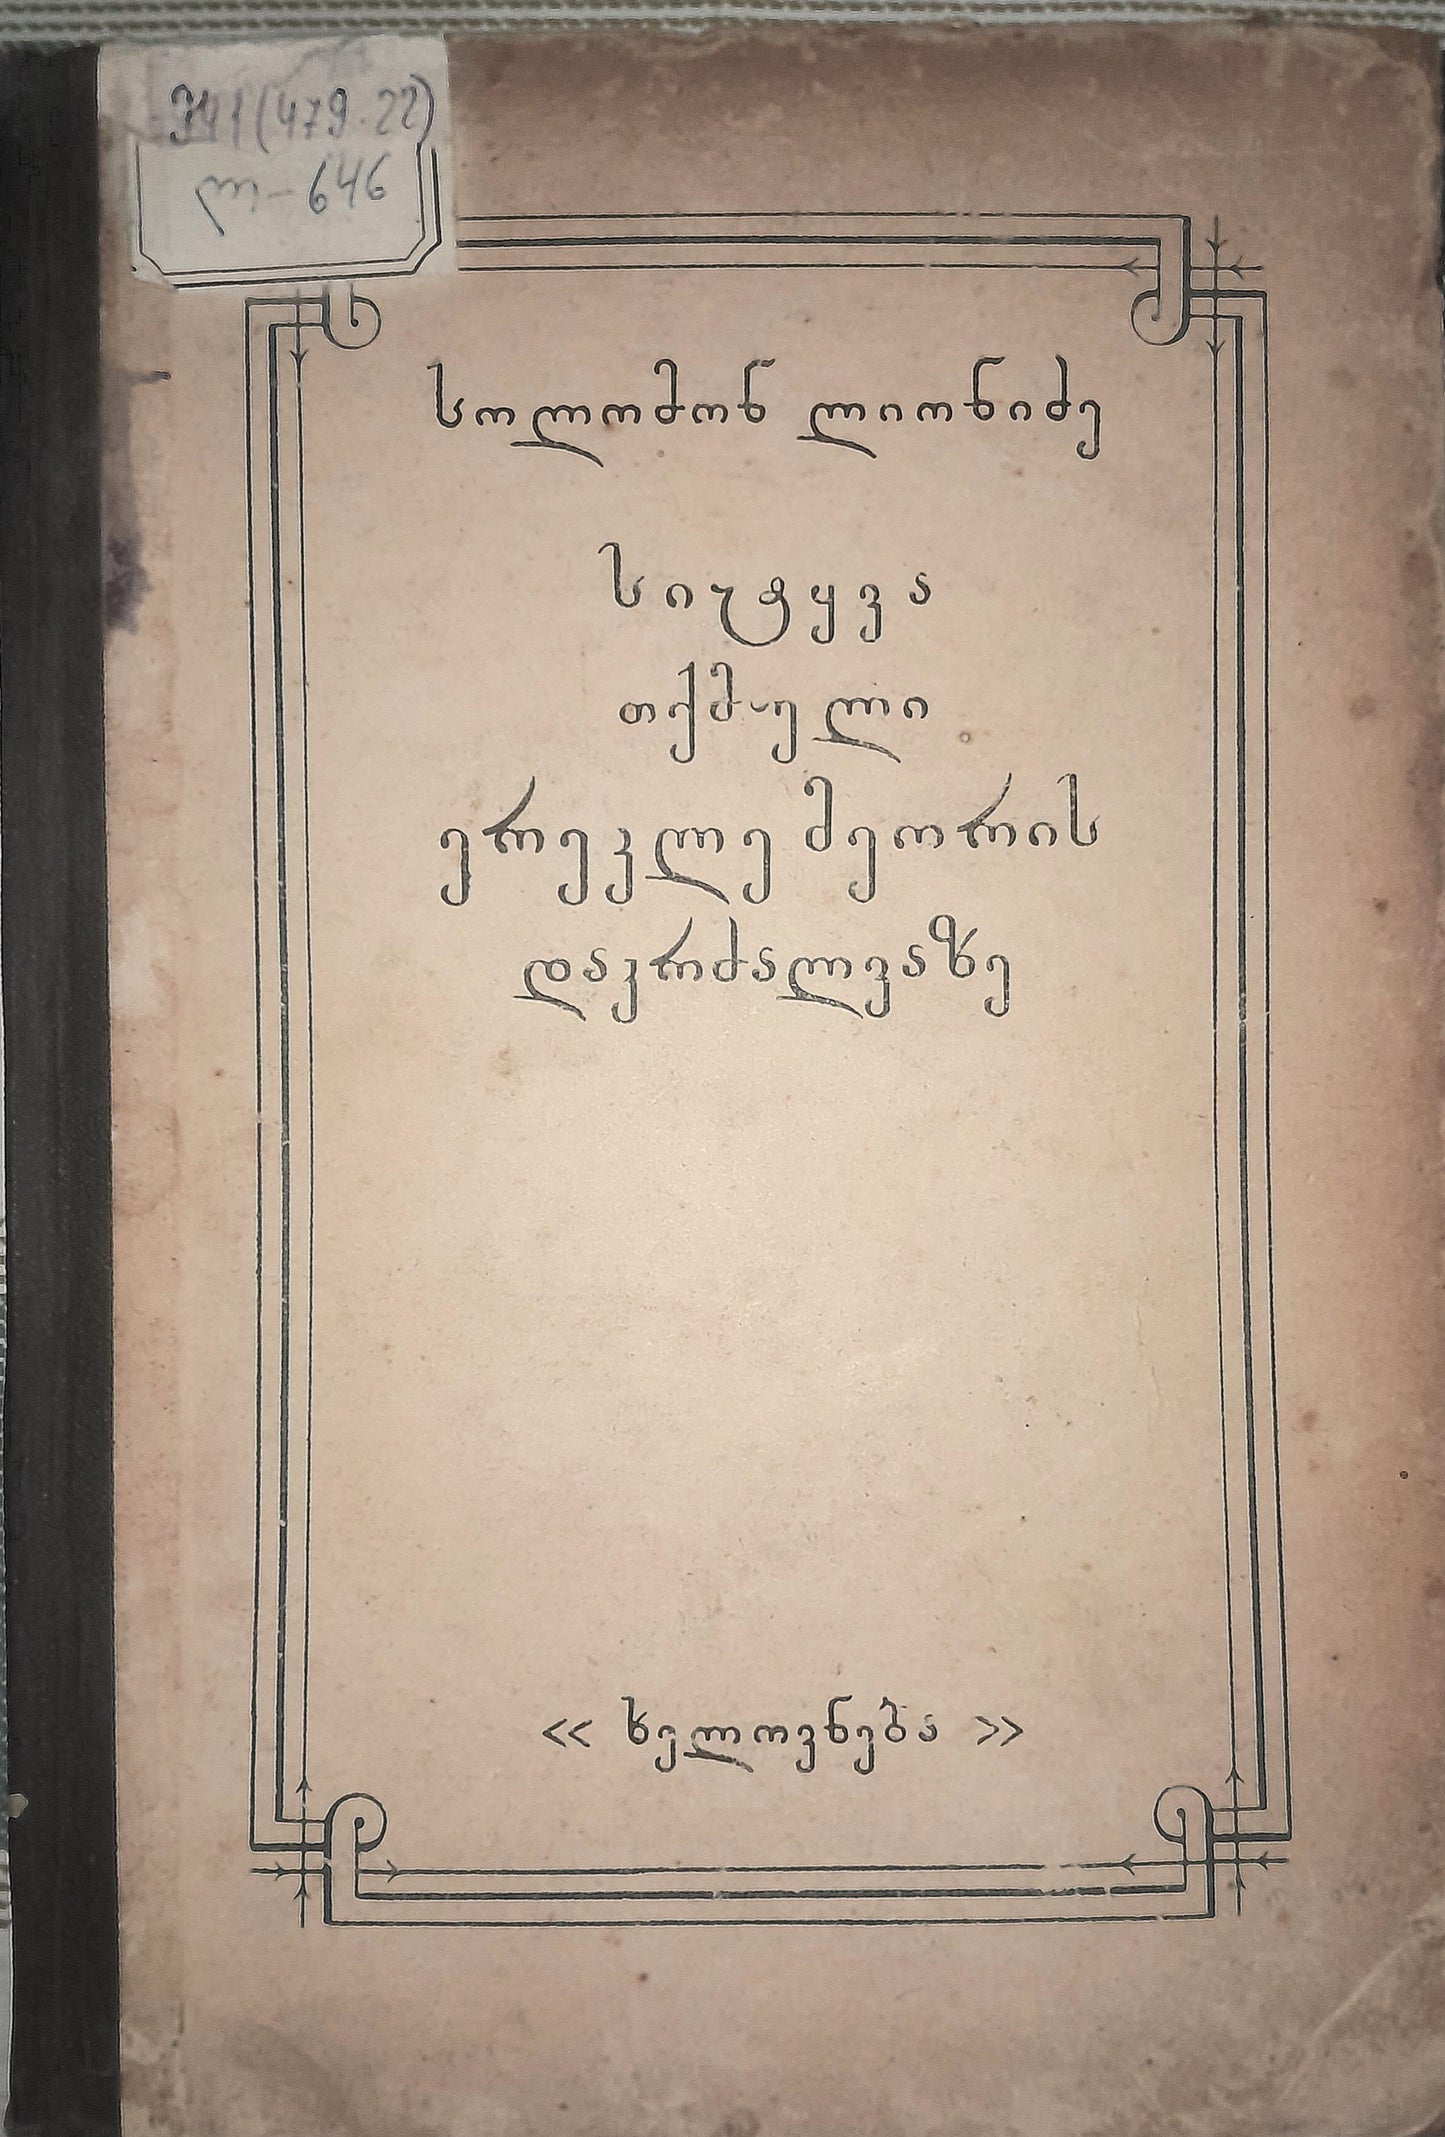 941(479.22)
ლ-646
სოლომონ ლიონიძე
სიტყვა
თქმული
ერეკლე მეორის
დაკრძალვაზე
«ხელოვნება»